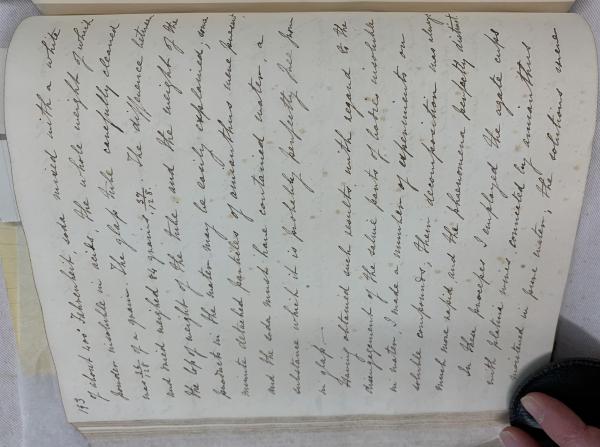 193
of about 200° Fahrenheit, soda mixed with a white
powder insoluble in acids, the whole weight of which
was 18/128 of a grain. The glass tube carefully cleaned
and dried weighed 84 grains 37/128. The difference between
the loss of weight of the tube and the weight of the
products in the water may be easily explained; some
minute detached particles of amianthus were present
and the soda must have contained water, a
substance which it is probably perfectly free from
in glass. —
Having obtained such results with regard to the
disengagement of the saline parts of bodies insoluble
in water I made a number of experiments on
soluble compounds; their decomposition was always
much more rapid and the phaenomena perfectly distinct.
In these processes I employed the agate cups
with platina wires connected by amianthus
moistened in pure water; the solutions were